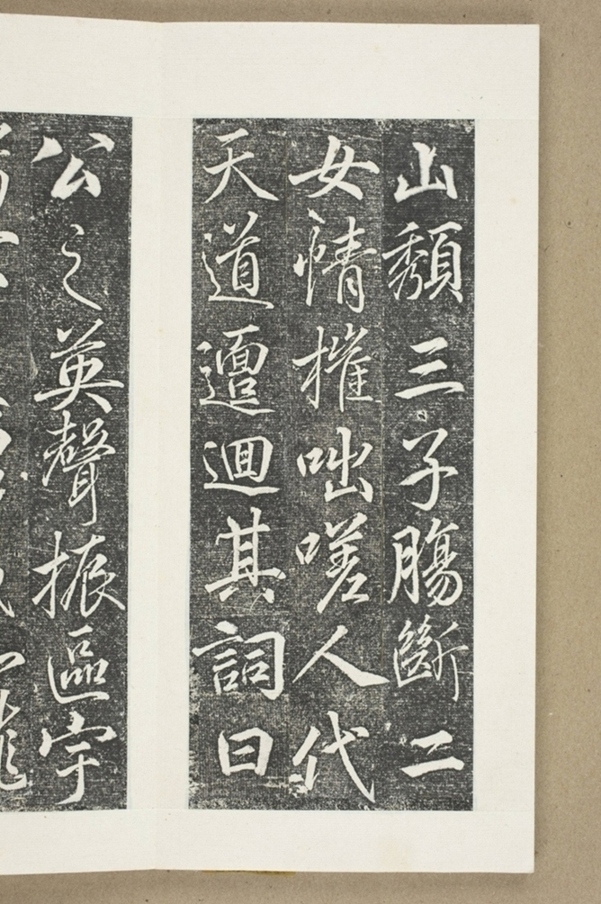 山頽三子腸斷二
女情摧咄嗟人代
天道邅迴其詞曰
公之英聲振區宇